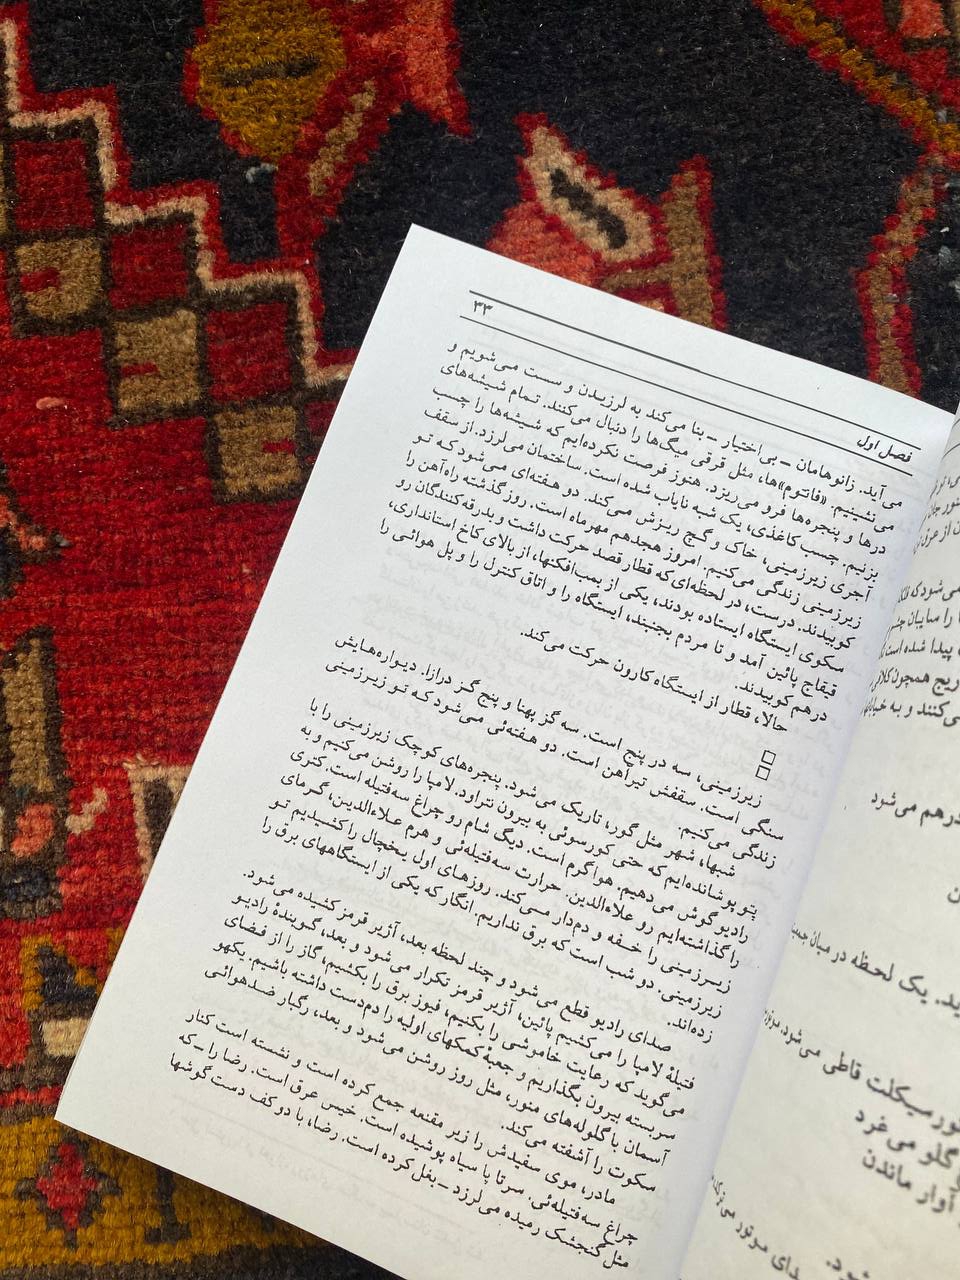 فصل اول
۳۳
می‌آید. زانوهامان ــ بی‌اختیار ــ بنا می‌کند به لرزیدن و سست می‌شویم و
می‌نشینیم. «فانتوم»ها، مثل قرقی میگ‌ها را دنبال می‌کنند. تمام شیشه‌های
درها و پنجره‌ها فرو می‌ریزد. هنوز فرصت نکرده‌ایم که شیشه‌ها را چسب
بزنیم. چسب کاغذی، یک شبه نایاب شده است. ساختمان می‌لرزد. از سقف
آجری زیرزمینی، خاک و گچ ریزش می‌کند. دو هفته‌ای می‌شود که تو
زیرزمینی زندگی می‌کنیم. امروز هجدهم مهرماه است. روز گذشته راه‌آهن را
کوبیدند. درست، در لحظه‌ای که قطار قصد حرکت داشت و بدرقه‌کنندگان رو
سکوی ایستگاه ایستاده بودند، یکی از بمب‌افکنها، از بالای کاخ استانداری،
قیقاج پائین آمد و تا مردم بجنبند، ایستگاه را و اتاق کنترل را و پل هوائی را
درهم کوبیدند.
حالا، قطار از ایستگاه کارون حرکت می‌کند.
زیرزمینی، سه در پنج است. سه گز پهنا و پنج گز درازا. دیواره‌هایش
سنگی است. سقفش تیرآهن است. دو هفته‌ئی می‌شود که تو زیرزمینی
زندگی می‌کنیم.
شبها، شهر مثل گور، تاریک می‌شود. پنجره‌های کوچک زیرزمینی را با
پتو پوشانده‌ایم که حتی کورسوئی به بیرون نتراود. لامپا را روشن می‌کنیم و به
رادیو گوش می‌دهیم. هوا گرم است. دیگ شام رو چراغ سه‌فتیله است. کتری
را گذاشته‌ایم رو علاءالدین. حرارت سه‌فتیله‌ئی و هرم علاءالدین، گرمای
زیرزمینی را خفه و دم‌دار می‌کند. روزهای اول یخچال را کشیدیم تو
زیرزمینی. دو شب است که برق نداریم. انگار که یکی از ایستگاههای برق را
زده‌اند.
صدای رادیو قطع می‌شود و چند لحظه بعد، آژیر قرمز کشیده می‌شود.
فتیلهٔ لامپا را می‌کشیم پائین، آژیر قرمز تکرار می‌شود و بعد، گویندهٔ رادیو
می‌گوید که رعایت خاموشی را بکنیم، فیوز برق را بکشیم، گاز را از فضای
سربسته بیرون بگذاریم و جعبهٔ کمکهای اولیه را دم‌دست داشته باشیم. یکهو
آسمان با گلوله‌های منور، مثل روز روشن می‌شود و بعد، رگبار ضدهوائی
سکوت را آشفته می‌کند.
مادر، موی سفیدش را زیر مقنعه جمع کرده است و نشسته است کنار
چراغ سه‌فتیله‌ئی. سر تا پا سیاه پوشیده است. خیس عرق است. رضا را ــ که
مثل گنجشک رمیده می‌لرزد ــ بغل کرده است. رضا، با دو کف دست گوشها
می‌شود که
را سایبان
پیدا شده است
می‌کنند و به
درهم می‌شود
ید. یک لحظه در میان
قاطی می‌شود.
گلو می‌غرد
آوار ماندن